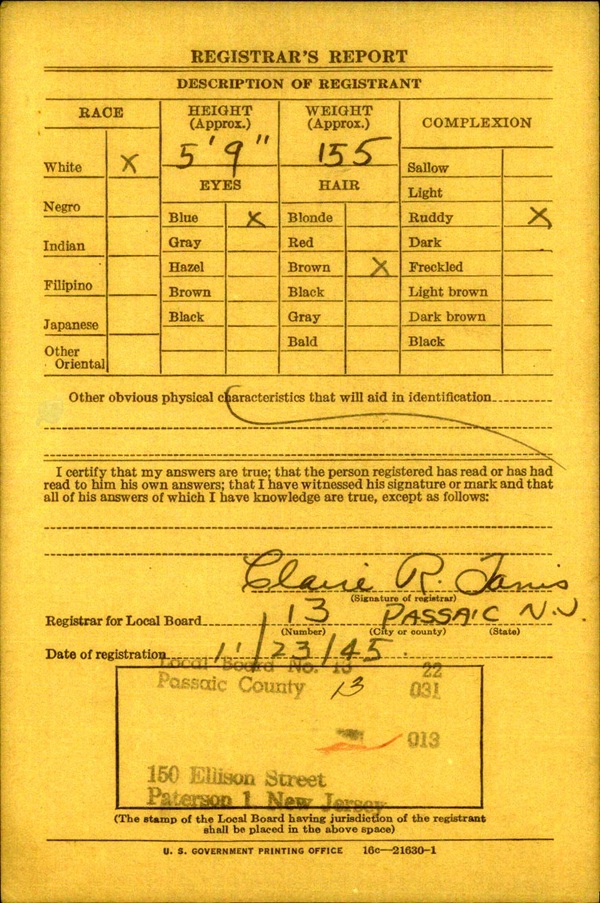 REGISTRAR'S REPORT
DESCRIPTION OF REGISTRANT
RACE
HEIGHT (Approx.)
WEIGHT (Approx.)
COMPLEXION
5' 9"
155
White X
Negro
Indian
Filipino
Japanese
Other Oriental
EYES
Blue X
Gray
Hazel
Brown
Black
HAIR
Blonde
Red
Brown X
Black
Gray
Bald
Sallow
Light
Ruddy X
Dark
Freckled
Light brown
Dark brown
Black
Other obvious physical characteristics that will aid in identification
I certify that my answers are true; that the person registered has read or has had
read to him his own answers; that I have witnessed his signature or mark and that
all of his answers of which I have knowledge are true, except as follows:
Claire R.
(Signature of registrar)
Registrar for Local Board 13 PASSAIC N.J.
(Number) (City or county) (State)
Date of registration 11/23/45.
Local Board No. 13 22
Passaic County 13 031
013
150 Ellison Street
Paterson 1 New Jersey
(The stamp of the Local Board having jurisdiction of the registrant
shall be placed in the above space)
U. S. GOVERNMENT PRINTING OFFICE 16c—21630-1